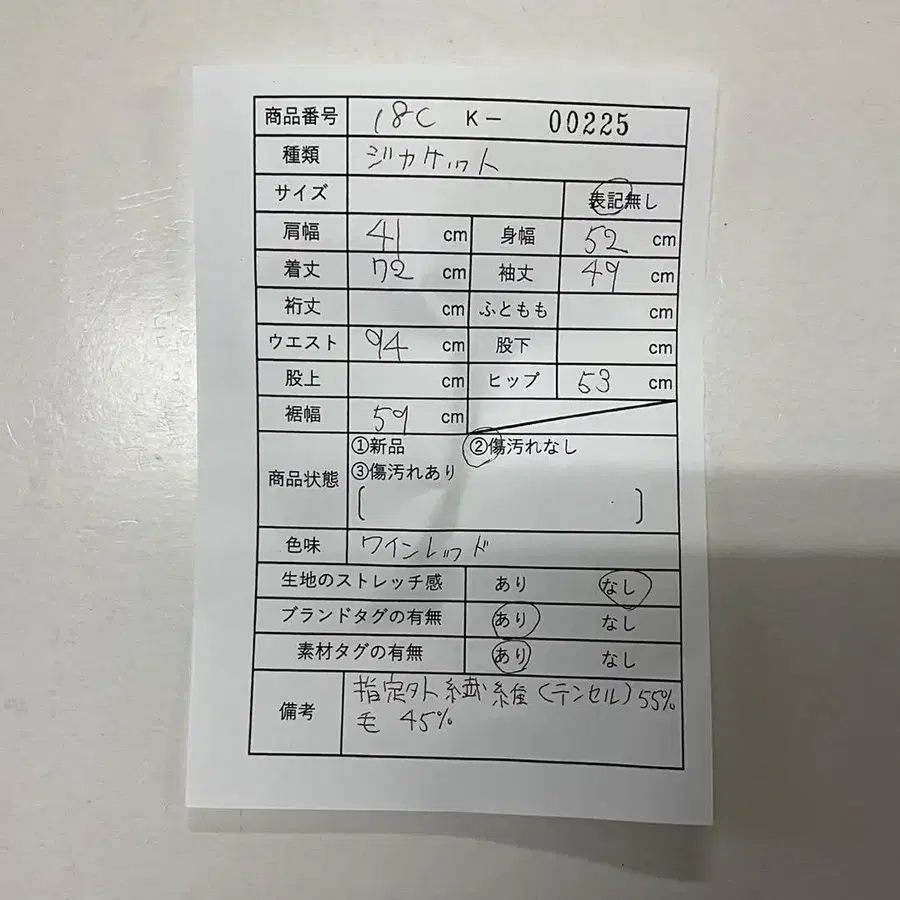 商品番号 18C K- 00225
種類 ジャケット
サイズ 表記無し
肩幅 41 cm 身幅 52 cm
着丈 72 cm 袖丈 49 cm
裄丈 cm ふともも cm
ウエスト 94 cm 股下 cm
股上 cm ヒップ 53 cm
裾幅 59 cm
①新品 ②傷汚れなし
商品状態 ③傷汚れあり
[ ]
色味 ワインレッド
生地のストレッチ感 あり なし
ブランドタグの有無 あり なし
素材タグの有無 あり なし
備考 指定外繊維(テンセル)55%
毛 45%